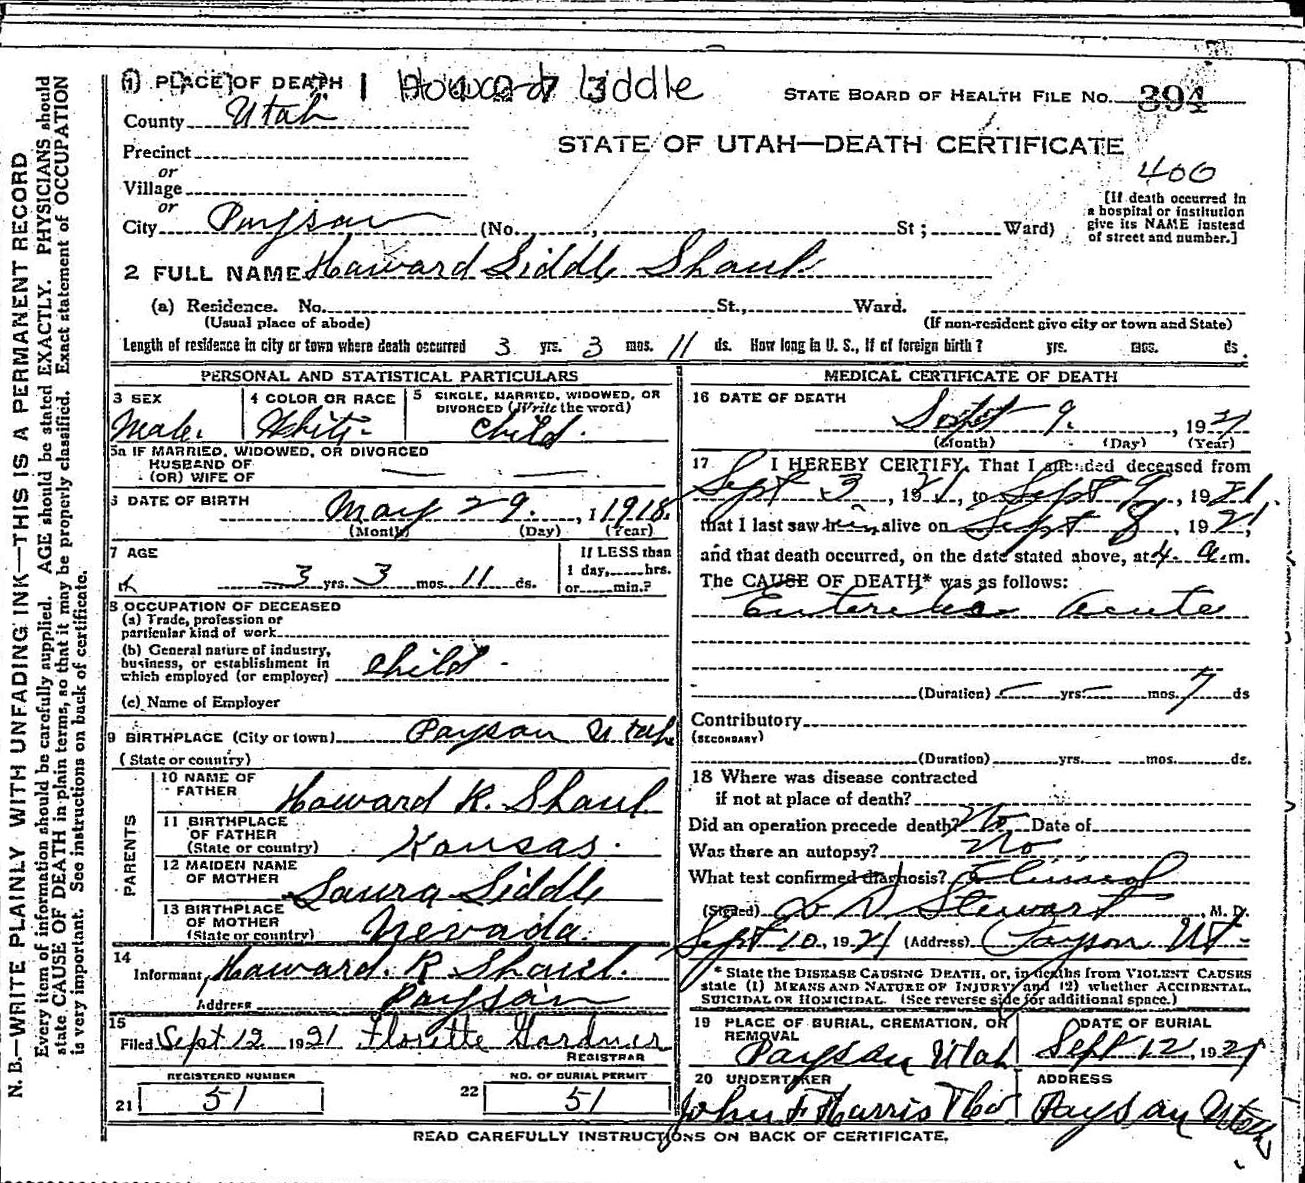 N. B.—WRITE PLAINLY WITH UNFADING INK—THIS IS A PERMANENT RECORD
Every item of information should be carefully supplied. AGE should be stated EXACTLY. PHYSICIANS should
state CAUSE OF DEATH in plain terms, so that it may be properly classified. Exact statement of OCCUPATION
is very important. See instructions on back of certificate.
(1) PLACE OF DEATH Howard Liddle
STATE BOARD OF HEALTH FILE NO. 394
County Utah
STATE OF UTAH—DEATH CERTIFICATE
Precinct
400
or
Village
or
[If death occurred in
a hospital or institution
give its NAME instead
of street and number.]
City Payson (No. , St; Ward)
2 FULL NAME Howard Siddle Shaul
(a) Residence. No. St., Ward.
(Usual place of abode) (If non-resident give city or town and State)
Length of residence in city or town where death occurred 3 yrs. 3 mos. 11 ds. How long in U. S., if of foreign birth? yrs. mos. ds.
PERSONAL AND STATISTICAL PARTICULARS
3 SEX 4 COLOR OR RACE 5 SINGLE, MARRIED, WIDOWED, OR
DIVORCED (Write the word)
Male. White Child.
5a IF MARRIED, WIDOWED, OR DIVORCED
HUSBAND OF
(OR) WIFE OF
6 DATE OF BIRTH
May 29. , 1 1918.
(Month) (Day) (Year)
7 AGE If LESS than
3 yrs. 3 mos. 11 ds. 1 day, hrs.
or min.?
8 OCCUPATION OF DECEASED
(a) Trade, profession or
particular kind of work
(b) General nature of industry,
business, or establishment in
which employed (or employer) Child.
(c) Name of Employer
9 BIRTHPLACE (City or town) Payson Utah
(State or country)
PARENTS
10 NAME OF
FATHER Howard R. Shaul
11 BIRTHPLACE
OF FATHER
(State or country) Kansas.
12 MAIDEN NAME
OF MOTHER Laura Siddle
13 BIRTHPLACE
OF MOTHER
(State or country) Nevada.
14
Informant Howard. R Shaul.
Address Payson
15
Filed Sept 12 1921 Florette Gardner
REGISTRAR
REGISTERED NUMBER NO. OF BURIAL PERMIT
21 51 22 51
MEDICAL CERTIFICATE OF DEATH
16 DATE OF DEATH
Sept 9. , 1921
(Month) (Day) (Year)
17 I HEREBY CERTIFY, That I attended deceased from
Sept 3 , 1921, to Sept 9, 1921.
that I last saw him alive on Sept 8, 1921,
and that death occurred, on the date stated above, at 4. a. m.
The CAUSE OF DEATH* was as follows:
Acute
(Duration) yrs. mos. 7 ds
Contributory
(SECONDARY)
(Duration) yrs. mos. ds.
18 Where was disease contracted
if not at place of death?
Did an operation precede death? No Date of
Was there an autopsy? No
What test confirmed diagnosis? Clinical
(Signed) D Stewart , M. D.
Sept 10, 1921 (Address) Payson Ut
* State the DISEASE CAUSING DEATH, or, in deaths from VIOLENT CAUSES
state (1) MEANS AND NATURE OF INJURY, and (2) whether ACCIDENTAL,
SUICIDAL OR HOMICIDAL. (See reverse side for additional space.)
19 PLACE OF BURIAL, CREMATION, OR
REMOVAL
Payson Utah
DATE OF BURIAL
Sept 12, 1921
20 UNDERTAKER
John F Harris
ADDRESS
Payson Utah
READ CAREFULLY INSTRUCTIONS ON BACK OF CERTIFICATE.